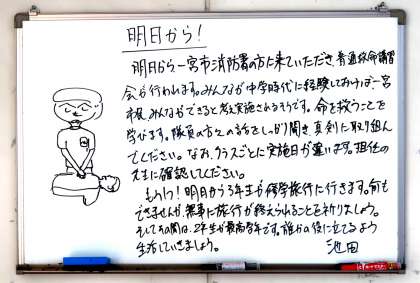 明日から!
明日から一宮市消防署の方に来ていただき、普通救命講習
会が行われます。みんなが中学時代に経験しておけば、一宮
市民みんなができると考え実施されるそうです。命を救うことを
学びます。隊員の方々の話をしっかり聞き、真剣に取り組ん
でください。なお、クラスごとに実施日が違います。担任の
先生に確認してください。
もう1つ!明日から3年生が修学旅行に行きます。何も
できませんが、無事に旅行が終えられることを祈りましょう。
そしてその間は、2年生が最高学年です。誰かの役に立てるよう
生活していきましょう。
池田